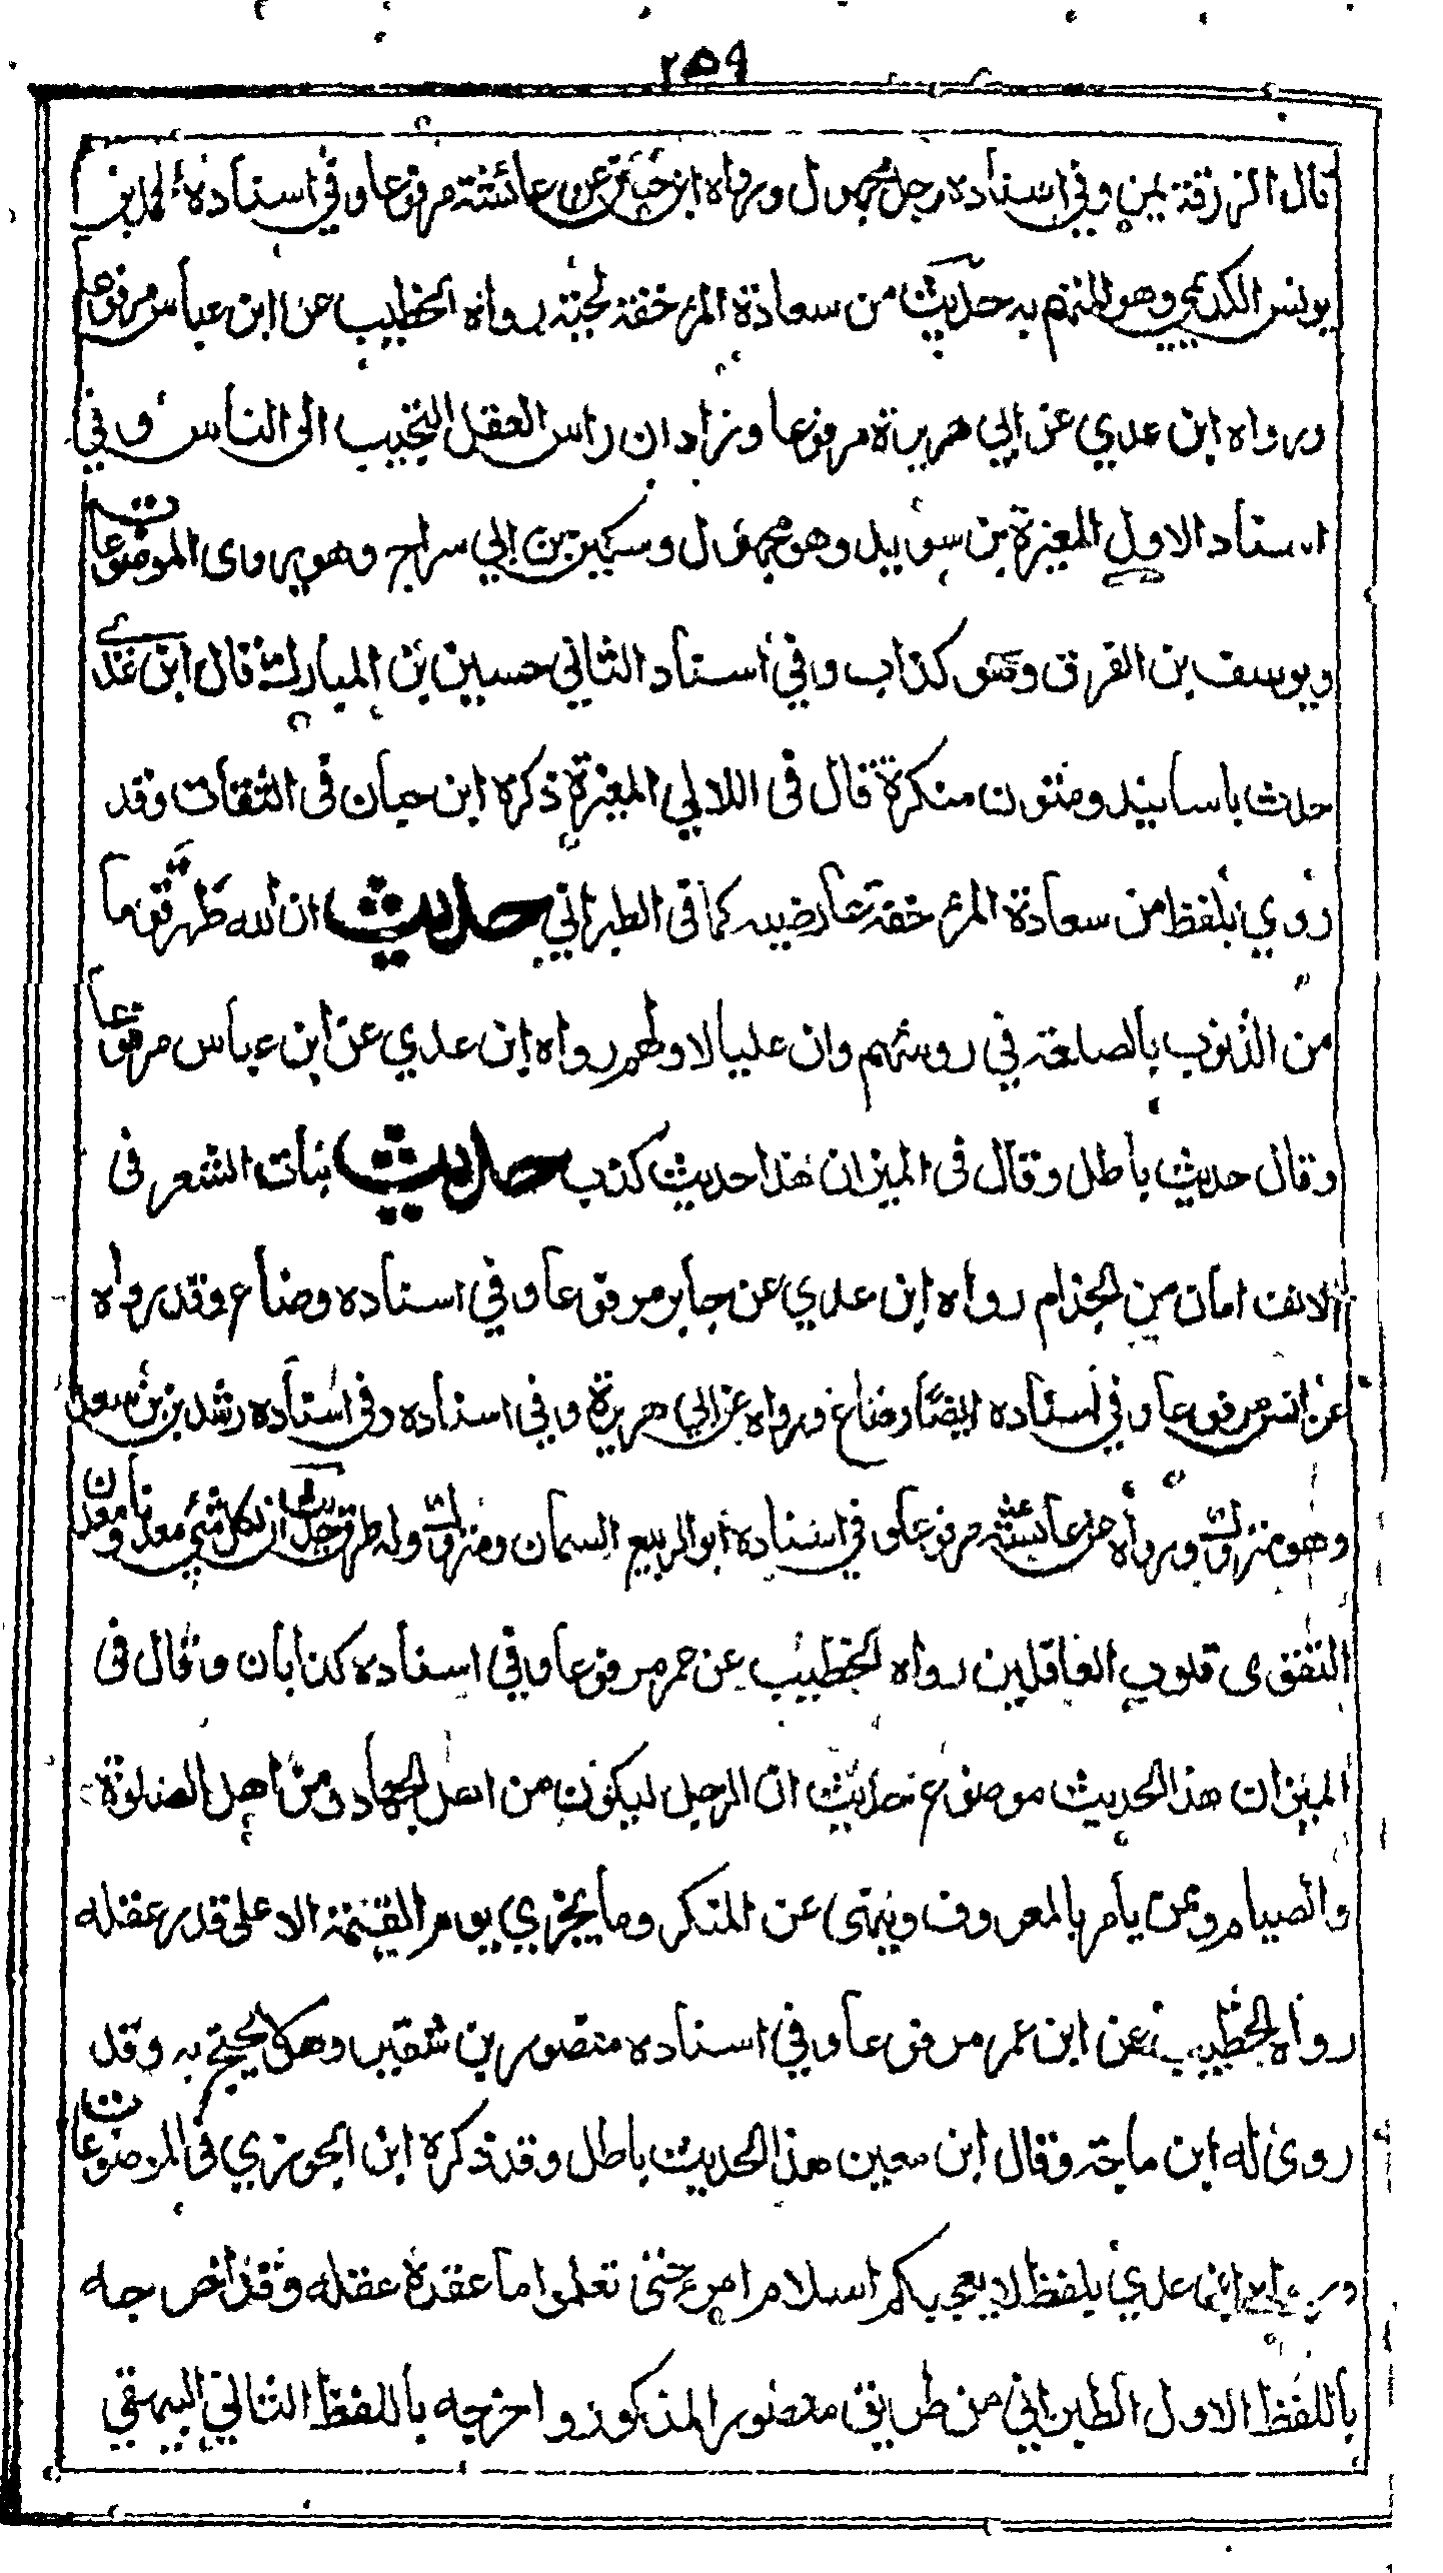 ٢٥٩
قال الزرقة يمن وفي اسناده رجل مجهول ورواه ابن حبان عن عائشة مرفوعا وفي اسناده محمد بن
يونس الكديمي وهو المتهم به حديث من سعادة المرء خفة لحيته رواه الخطيب عن ابن عباس مرفوعا
ورواه ابن عدي عن ابي هريرة مرفوعا وزاد ان راس العقل التحبب الى الناس وفي
اسناد الاول المغيرة بن سويد وهو مجهول وسكين بن ابي سراج وهو يروى الموضوعات
ويوسف بن الغرق وهو كذاب وفي اسناد الثاني حسين بن المبارك قال ابن عدي
حدث باسانيد ومتون منكرة قال في اللالي المغيرة ذكره ابن حبان في الثقات وقد
روي بلفظ من سعادة المرء خفة عارضيه كما في الطبراني حديث ان الله طهر قوما
من الذنوب بالصلعة في روسهم وان عليا لاولهم رواه ابن عدي عن ابن عباس مرفوعا
وقال حديث باطل وقال في الميزان هذا حديث كذب حديث بنات الشعر في
الانف امان من الجذام رواه ابن عدي عن جابر مرفوعا وفي اسناده وضاع وقد رواه
عن انس مرفوعا وفي اسناده ايضا وضاع ورواه عن ابي هريرة وفي اسناده وفي اسناده رشدين بن سعد
وهو متروك ورواه عن عائشة مرفوعا وفي اسناده ابو الربيع السمان ومتروك وله طرق حديث ان لكل شئ معدنا ومعدن
التقوى قلوب العاقلين رواه الخطيب عن عمر مرفوعا وفي اسناده كذابان وقال في
الميزان هذا الحديث موضوع حديث ان الرجل ليكون من اهل الجهاد ومن اهل الصلوة
والصيام وممن يأمر بالمعروف وينهى عن المنكر وما يجزي يوم القيمة الا على قدر عقله
رواه الخطيب عن ابن عمر مرفوعا وفي اسناده منصور بن شقير وهو لا يحتج به وقد
روى له ابن ماجة وقال ابن معين هذا الحديث باطل وقد ذكره ابن الجوزي في الموضوعات
ابن عدي بلفظ لا يعجبكم اسلام امرء حتى تعلموا ما عقدة عقله وقد اخرجه
باللفظ الاول الطبراني من طريق منصور المذكور واخرجه باللفظ الثاني البيهقي